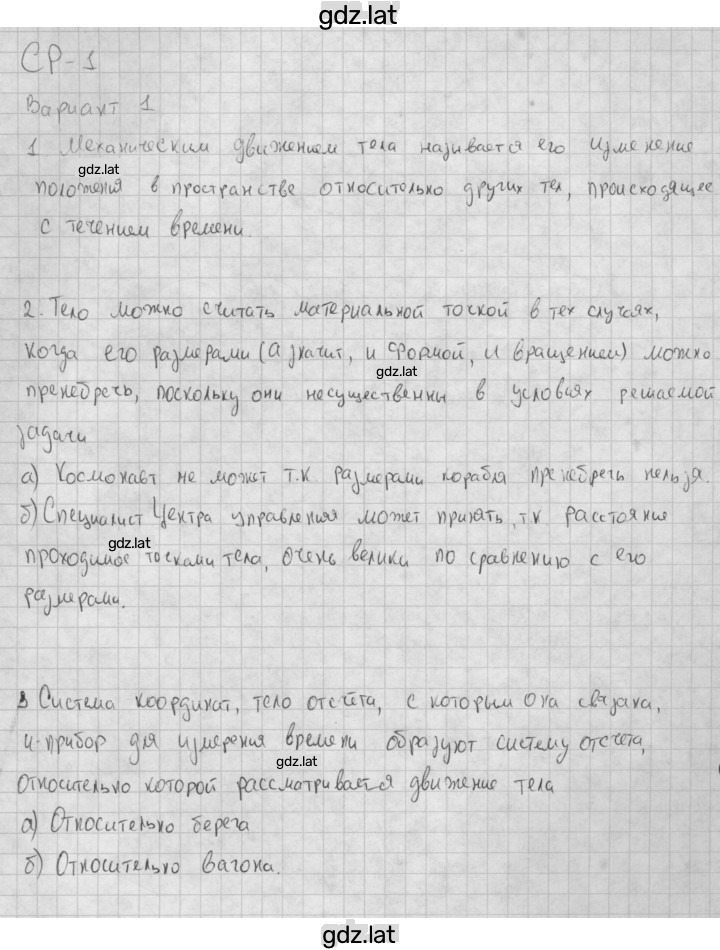 gdz.lat
СР-1
Вариант 1
gdz.lat
1 Механическим движением тела називается его изменение
положения в пространстве относительно других тел, происходящее
с течением времени.
2. Тело можно считать материальной точкой в тех случаях,
когда его размерами (а значит, и формой, и вращением) можно
gdz.lat
пренебречь, поскольку они несущественны в условиях решаемой
задачи
а) Космонавт не может т.к размерами корабля пренебречь нельзя.
б) Специалист Центра управления может принять, т.к. расстояние
gdz.lat
проходимое точками тела, очень велики по сравнению с его
размерами.
3 Система координат, тело отсчёта, с которым она связана,
и прибор для измерения времени образуют систему отсчета,
gdz.lat
относительно которой рассматривается движение тела
а) Относительно берега
б) Относительно вагона.
gdz.lat